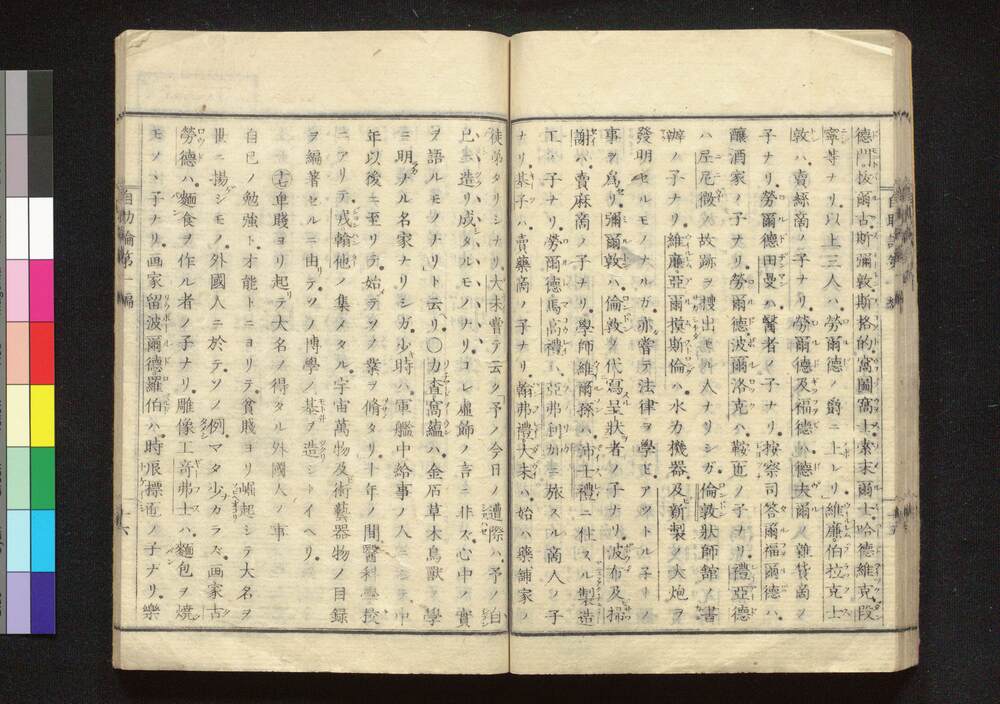 徳門按爾古斯彌敦斯格的窩圖窩士索末爾士哈徳維克段
寧等ナリ以上三人ハ勞爾徳ノ爵ニ上レリ維廉伯拉克士
敦ハ賣絹商ノ子ナリ勞爾徳及福徳ハ徳夫爾ノ雜貨商ノ
子ナリ勞爾徳田曼ハ醫者ノ子ナリ按察司答爾福爾徳ハ
釀酒家ノ子ナリ勞爾徳波爾洛克ハ鞍匠ノ子ナリ禮亞徳
ハ尼尼微ノ故跡ヲ搜出セル人ナリシガ倫敦狀師館ノ書
辦ノ子ナリ維廉亞爾模斯倫ハ水力機器及新製ノ大炮ヲ
發明セルモノナルガ亦嘗テ法律ヲ學ビアツトル子ーノ
事ヲ爲セリ彌爾敦ハ倫敦ノ代寫呈狀者ノ子ナリ波布及掃
謝ハ賣麻商ノ子ナリ學師維爾孫ハ沛士禮ニ住スル製造
工ノ子ナリ勞爾徳馬高禮ハ亞弗利加ニ旅スル商人ノ子
ナリ基子ハ賣藥商ノ子ナリ翰弗禮大未ハ始ハ藥舗家ノ
徒弟タリシナリ大未嘗テ云ク予ノ今日ノ遭際ハ予ノ自
己ニ造リ成タルモノナリコレ虚飾ノ言ニ非ス心中ノ實
ヲ語ルモノナリト云リ〇力査窩蘊ハ金石草木鳥獸ノ學
ニ明ナル名家ナリシガ少時ハ軍艦中給事ノ人ニシテ中
年以後ニ至リテ始テソノ業ヲ脩タリ十年ノ間醫科學校
ニアリテ戎翰他ノ集メタル宇宙萬物及ビ術藝器物ノ目録
ヲ編著セルニ由リテソノ博學ノ基ヲ造シトイヘリ
十七卑賤ヨリ起テ大名ノ得タル外國人ノ事
自己ノ勉強ト才能トニヨリテ貧賤ヨリ崛起シテ大名ヲ
世ニ揚シモノ外國人ニ於テソノ例マタ少ナカラズ画家古
勞徳ハ麵食ヲ作ル者ノ子ナリ雕像工奇弗士ハ麵包ヲ燒
モノヽ子ナリ画家留波爾徳羅伯ハ時辰標匠ノ子ナリ樂
自助論第一編
六